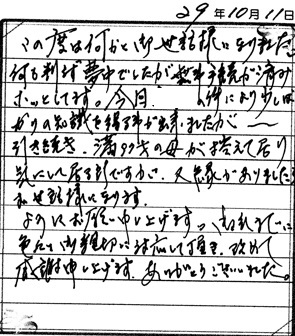 29年10月11日
この度は何かと御世話様になりました。
何も判らず夢中でしたが無事手続が済み
ホッとしてます。今回　の件により少しば
かりの知識を得る事が出来ましたが
引き続き、満99才の母が控えて居り
気にして居る所ですが、又縁がありましたら
お世話様になります。
よろしくお願い申し上げます。
色々と御親切に対応して頂き、改めて
感謝申し上げます。ありがとうございました。